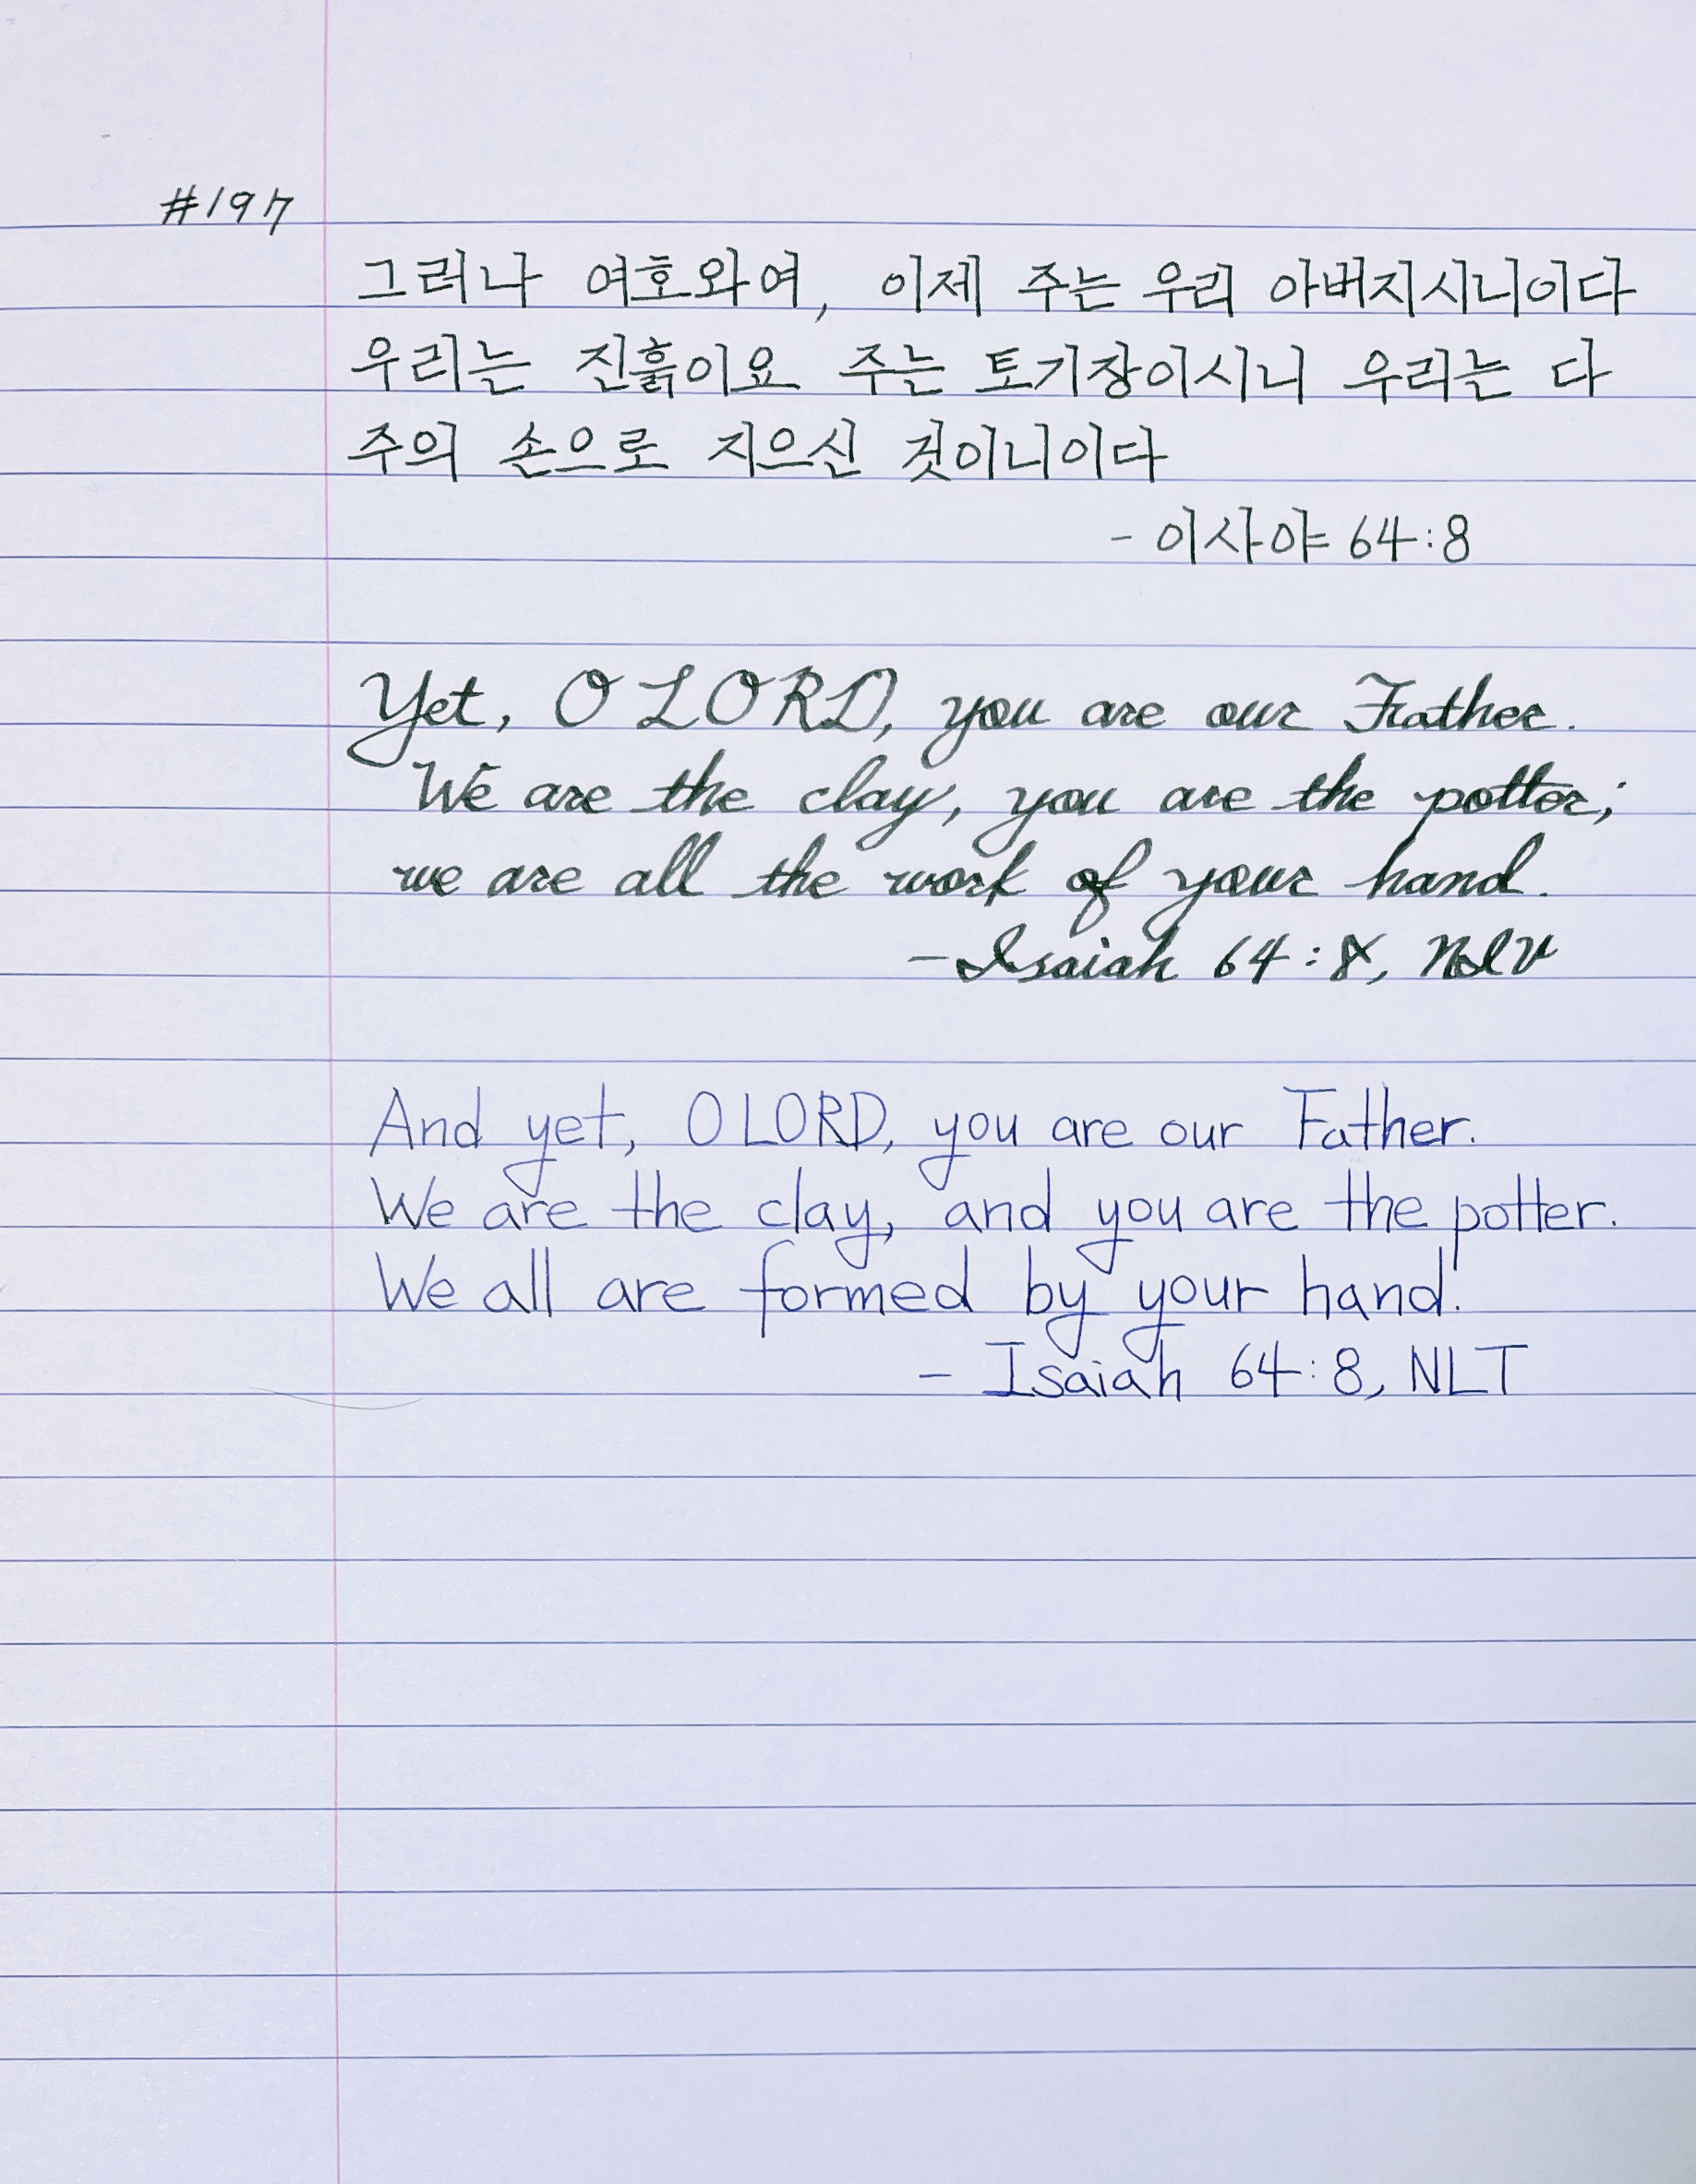 #197
그러나 여호와여, 이제 주는 우리 아버지시니이다
우리는 진흙이요 주는 토기장이시니 우리는 다
주의 손으로 지으신 것이니이다
- 이사야 64:8
Yet, O LORD, you are our Father.
We are the clay, you are the potter;
we are all the work of your hand.
- Isaiah 64:8, NIV
And yet, O LORD, you are our Father.
We are the clay, and you are the potter.
We all are formed by your hand.
- Isaiah 64:8, NLT